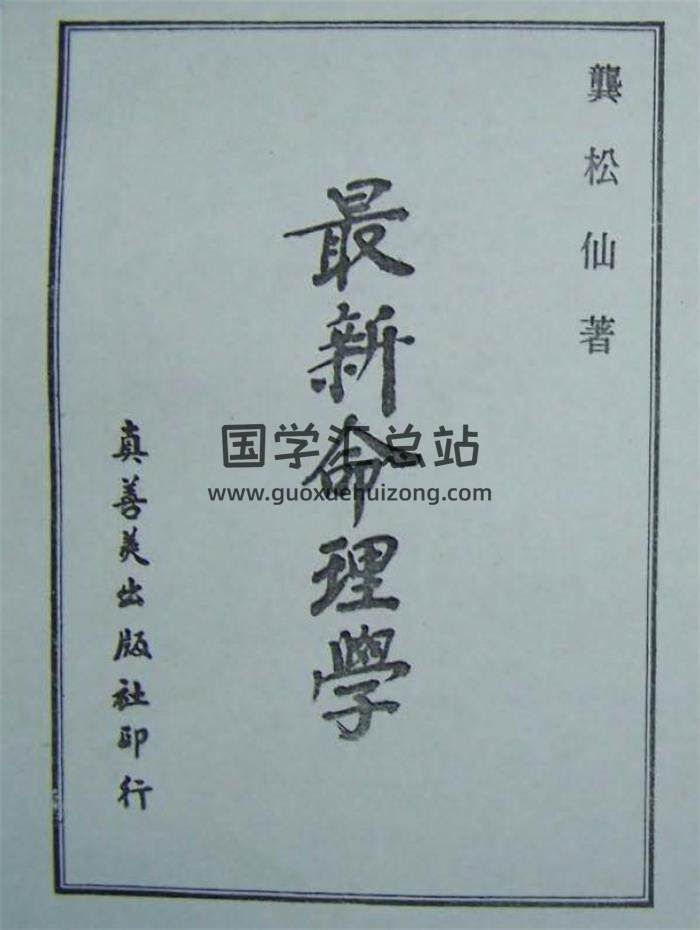 龔松仙著
最新命理學
真善美出版社印行
国学汇总站
www.guoxuehuizong.com